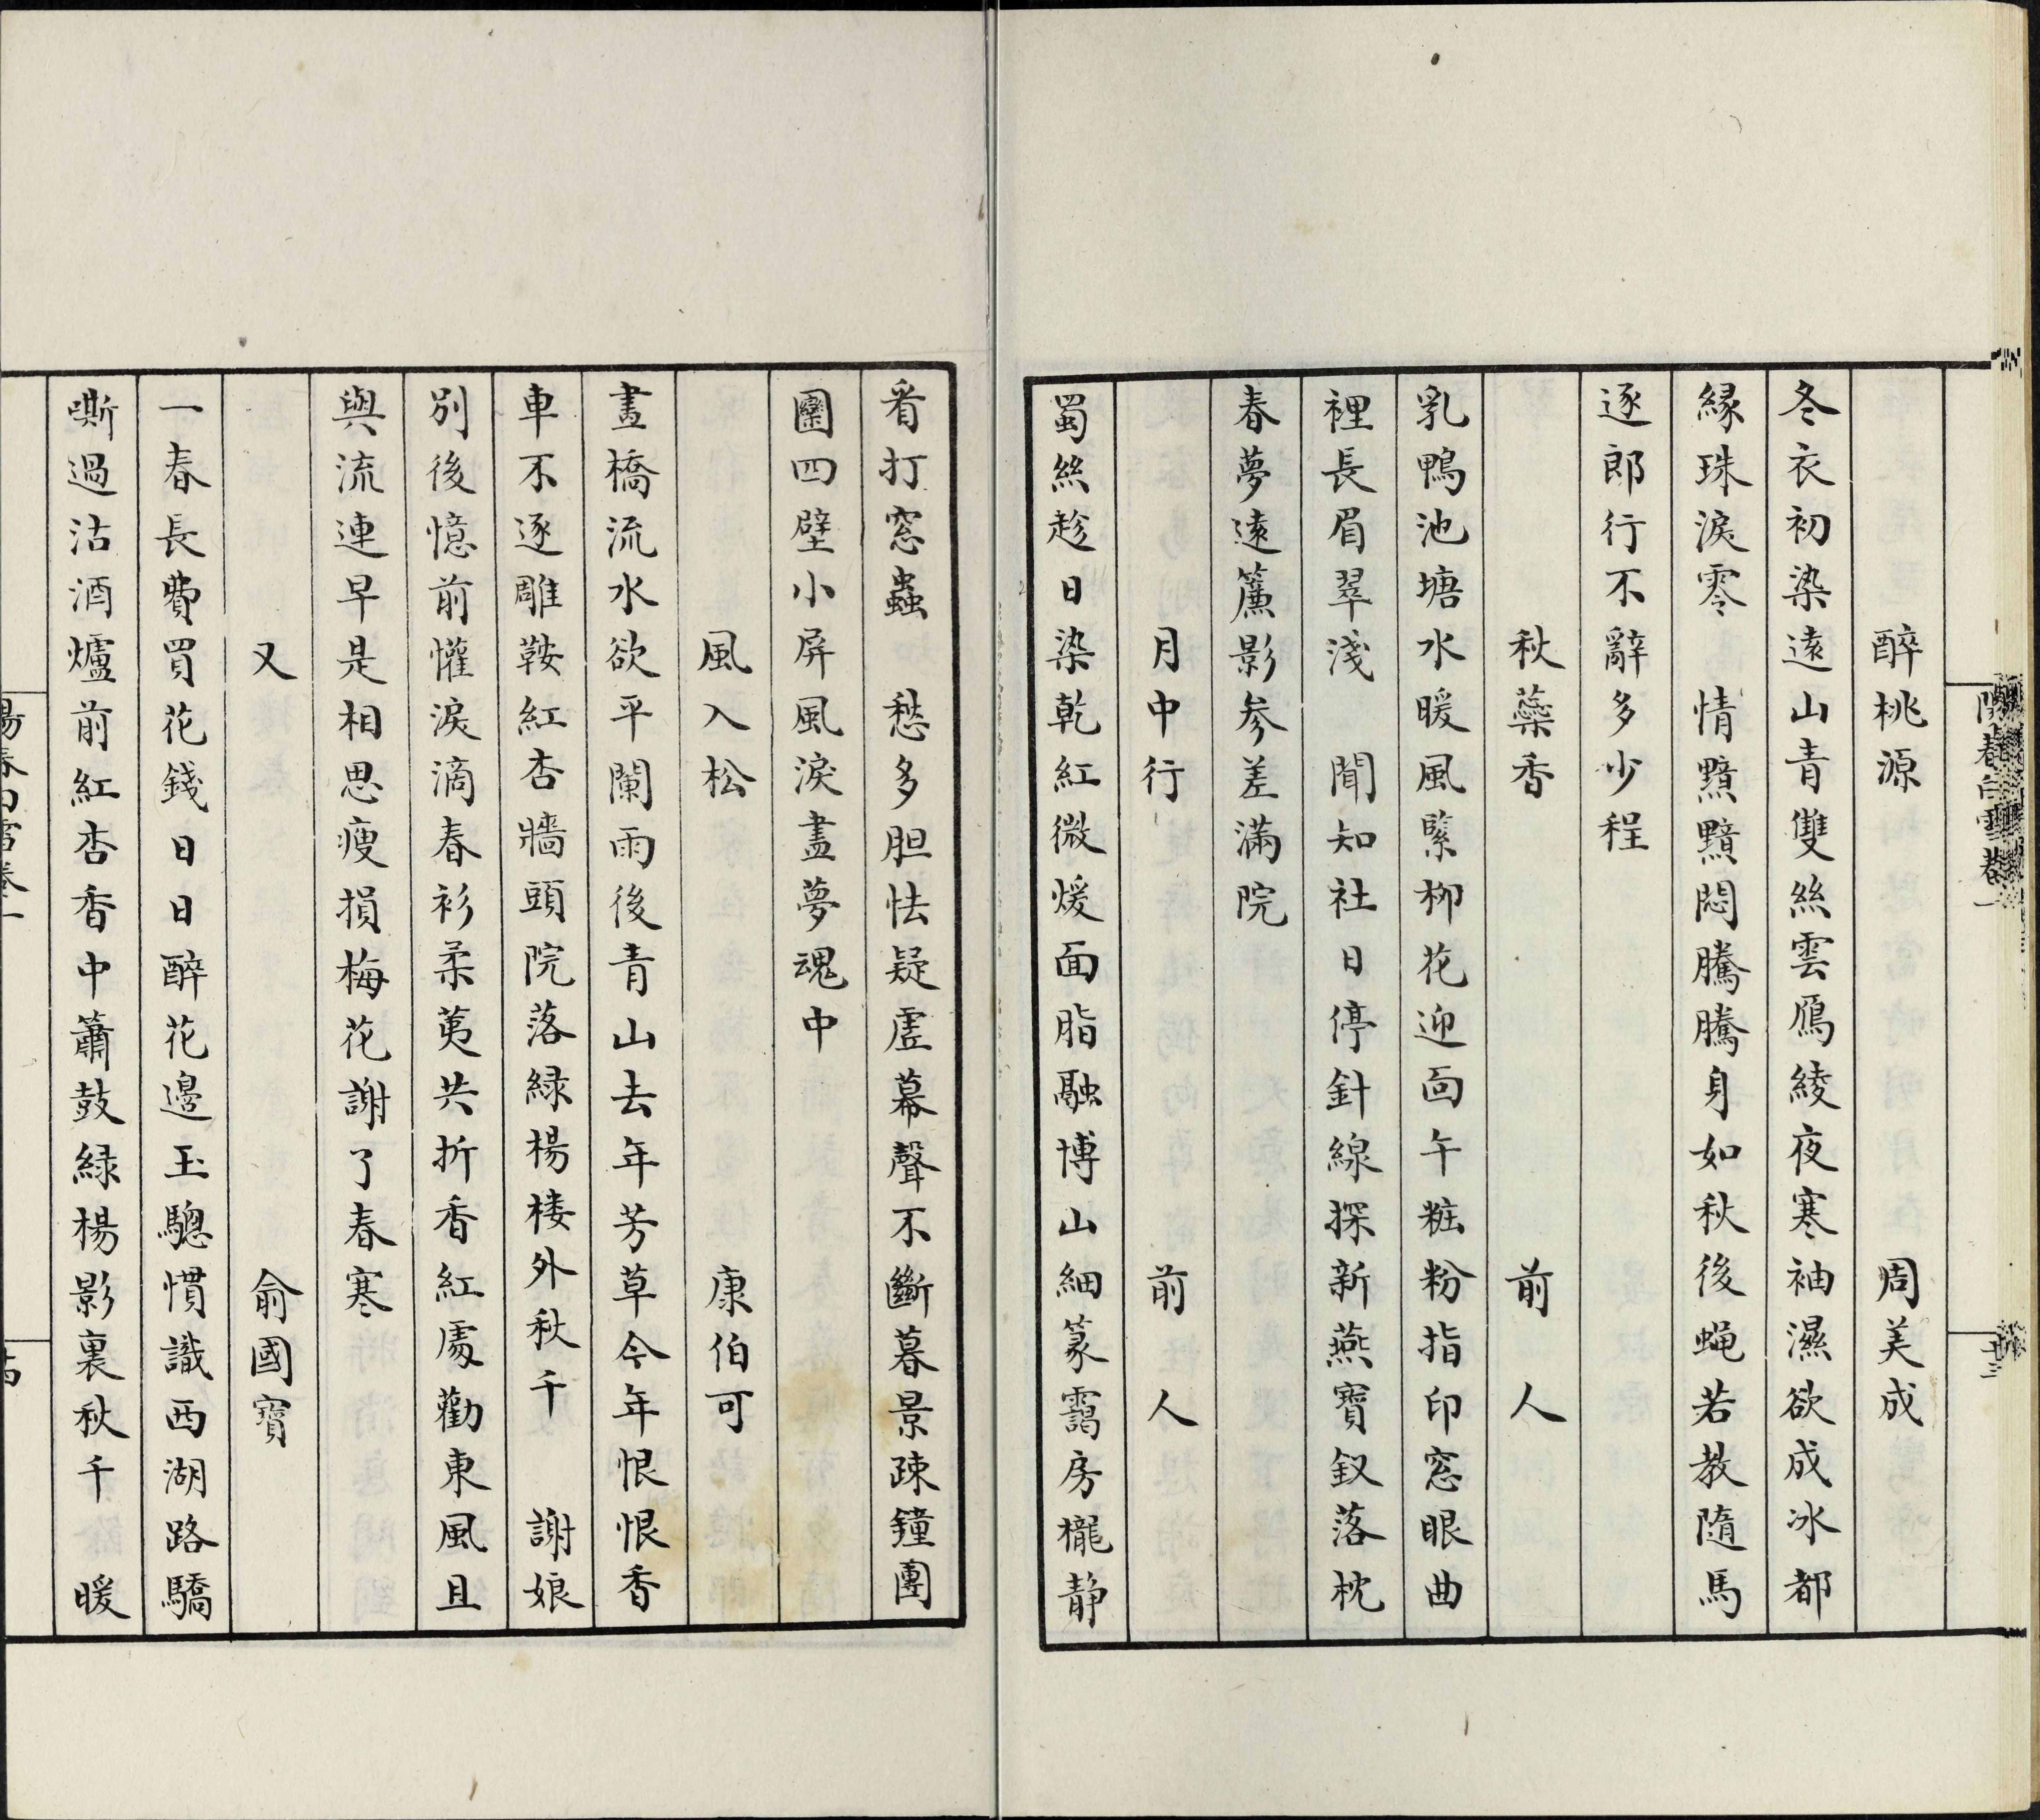 陽春白雪卷一
十三
醉桃源 周美成
冬衣初染遠山青雙絲雲鴈綾夜寒袖濕欲成冰都
緣珠淚零 情黯黯悶騰騰身如秋後蝇若教隨馬
逐郎行不辭多少程
秋蘂香 前人
乳鴨池塘水暖風緊栁花迎面午粧粉指印窓眼曲
裡長眉翠淺 聞知社日停針線探新燕寶釵落枕
春夢遠簾影参差滿院
月中行 前人
蜀絲趁日染乾紅微煖面脂融博山細篆靄房櫳静
看打窓蟲 愁多胆怯疑虚幕聲不斷暮景疎鐘團
團四壁小屏風淚盡夢魂中
風入松 康伯可
畫橋流水欲平闌雨後青山去年芳草今年恨恨香
車不逐雕鞍紅杏牆頭院落緑楊楼外秋千 謝娘
別後憶前懽淚滴春衫柔荑共折香紅處勸東風且
與流連早是相思瘦損梅花謝了春寒
又 俞國寳
一春長費買花錢日日醉花邊玉驄慣識西湖路驕
嘶過沽酒爐前紅杏香中簫鼓緑楊影裏秋千 暖
陽春白雪卷一